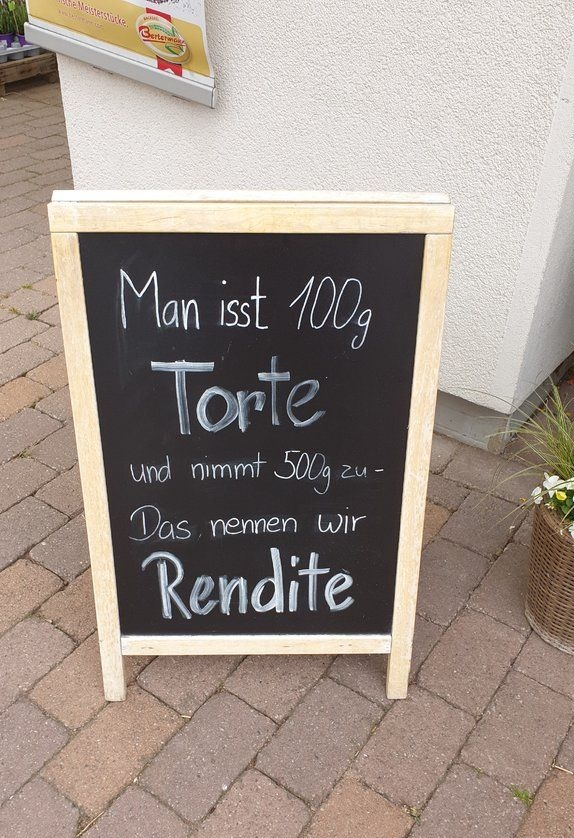 Meisterstücke.
Bertermann
Man isst 100g
Torte
und nimmt 500g zu -
Das nennen wir
Rendite